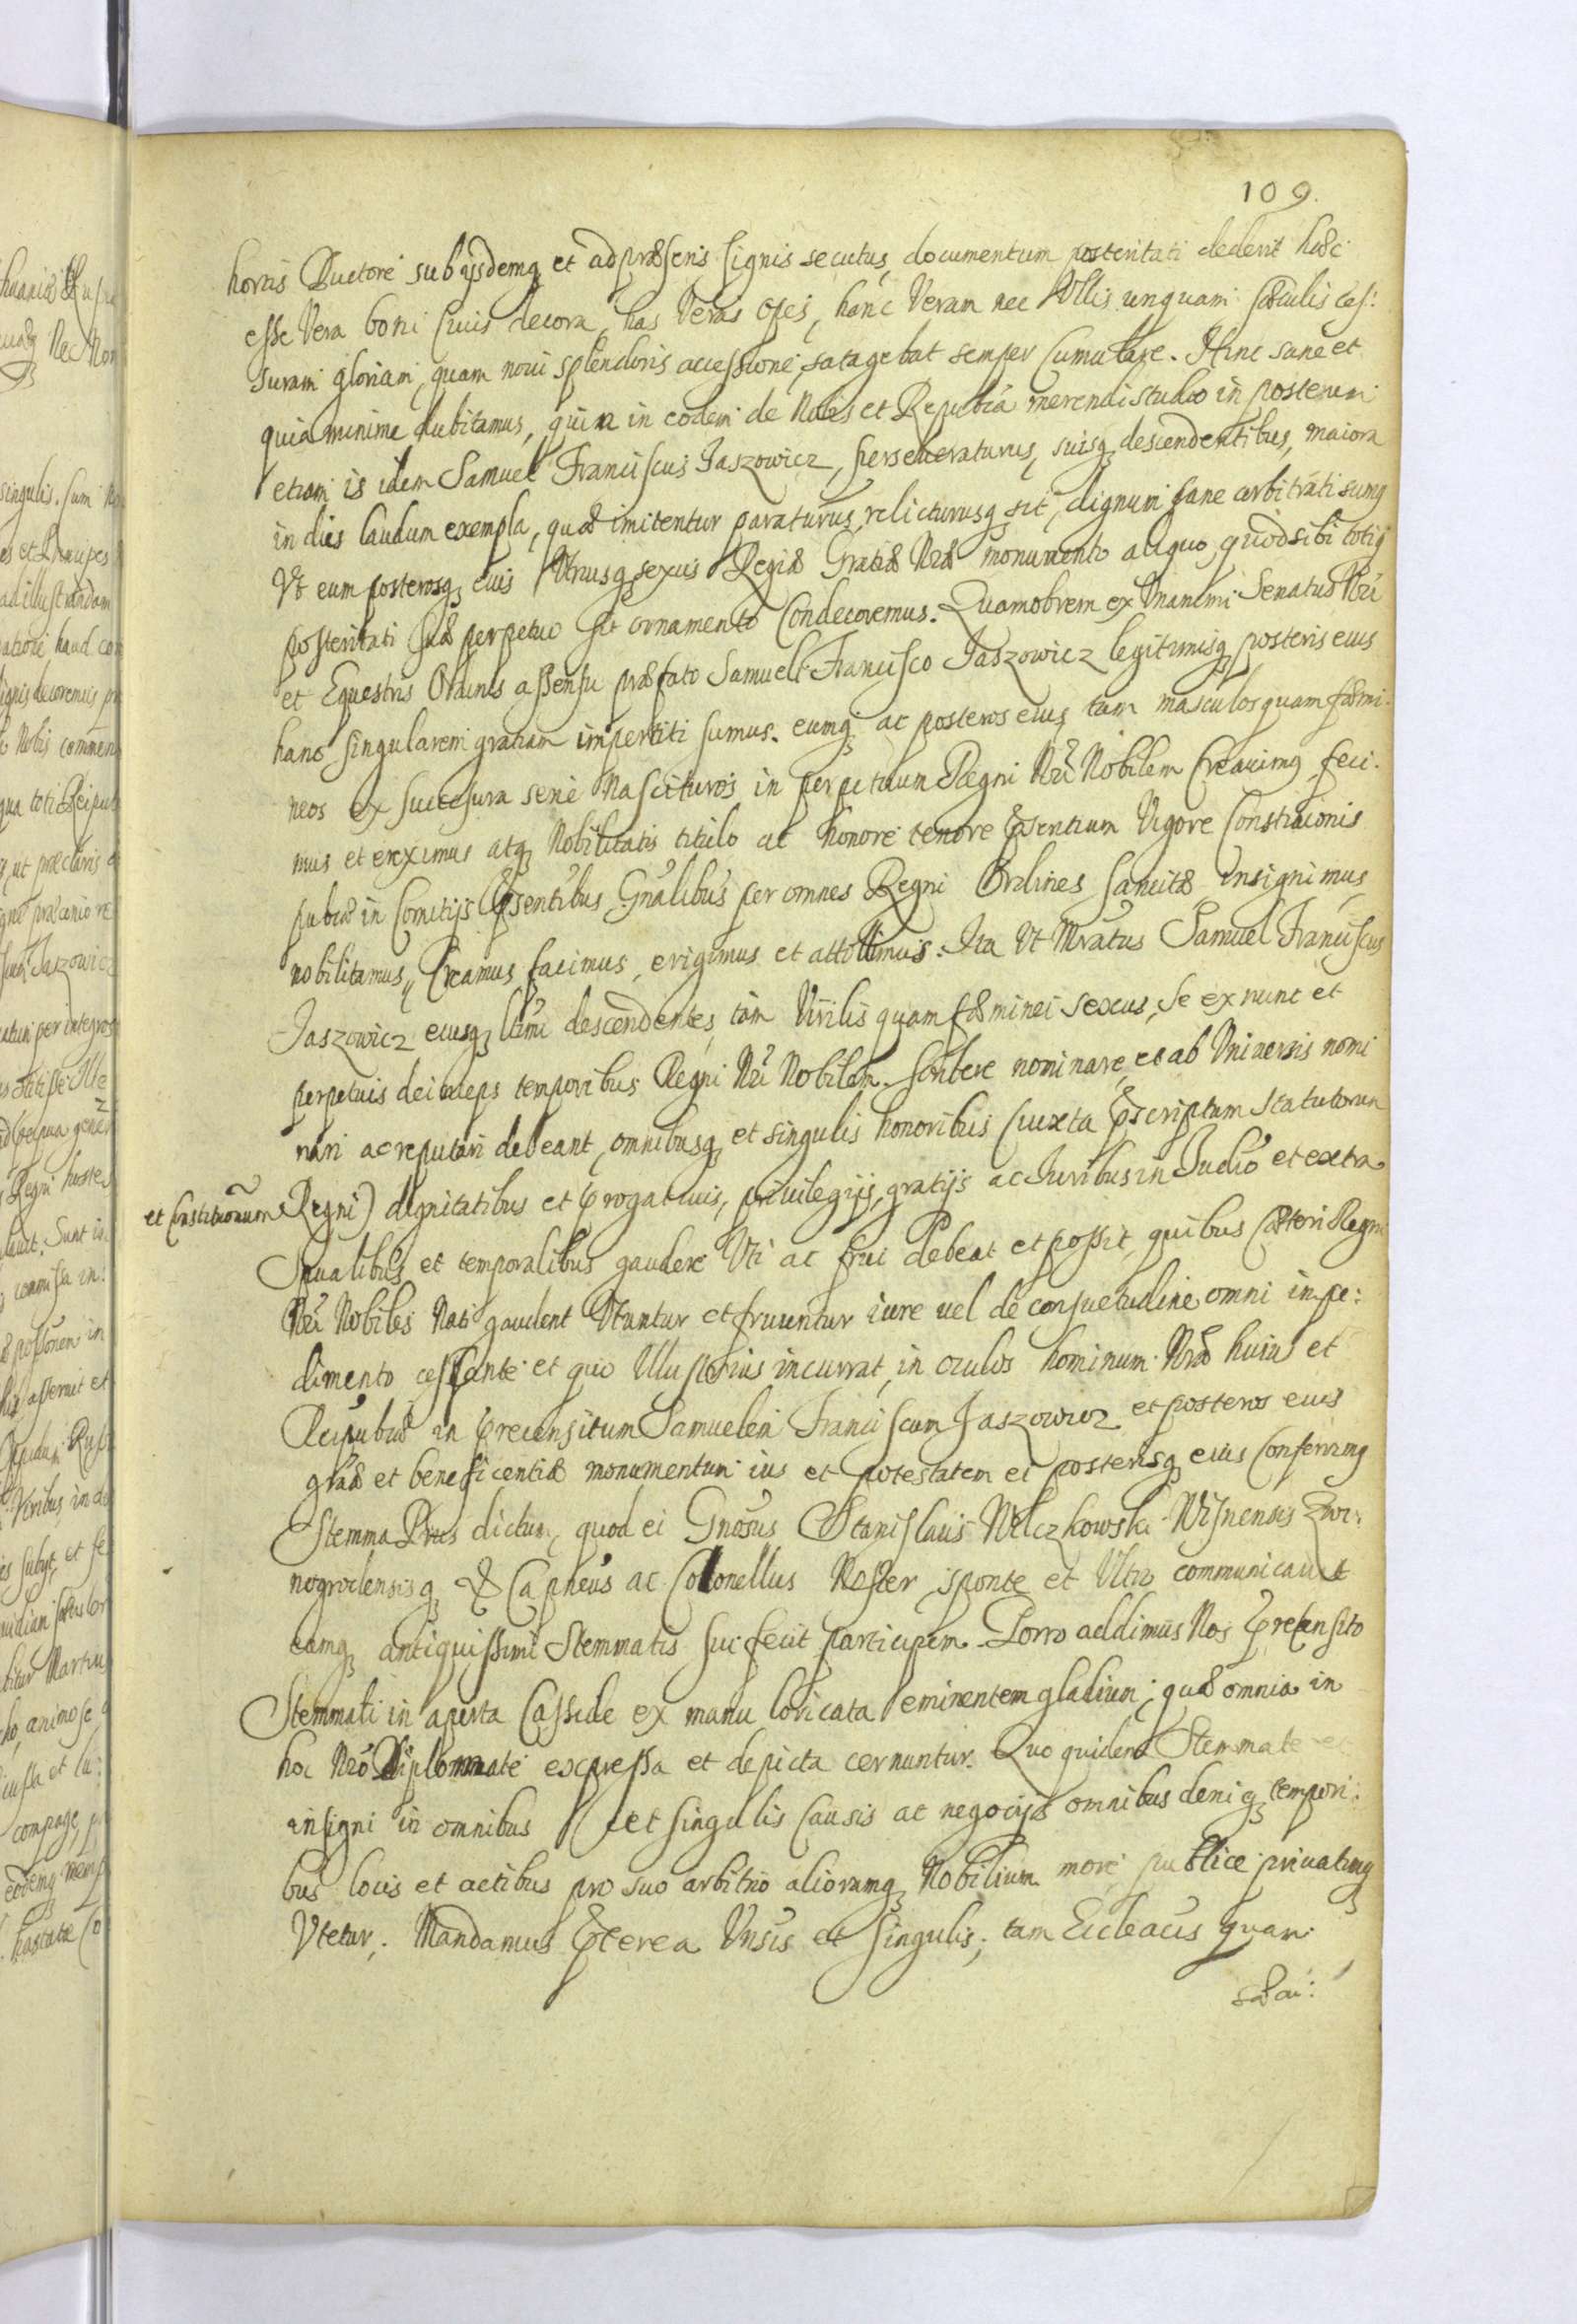 109.
hortis Ductore sub ijsdemq et ad præsens signis secutus, documentum posteritati dederit hæc
esse Vera boni Ciuis decora, has Veras opes, hanc Veram nec Ullis unquam sæculis ces:
suram gloriam, quam noui splendoris accessione, satagebat semper Cumulare. Hinc sane et
quia minime dubitamus, quin in eodem de Nobis et Republica merendi studio in posterum
etiam is idem Samuel Franciscus Jaszowicz, perseueraturus, suisq descendentibus, maiora
in dies laudum exempla, quæ imitentur paraturus, relicturusq sit, dignum sane arbitrati sumq
Vt eum posterosq eius Vtriusq sexus Regiæ Gratiæ Nræ monumento aliquo, quod sibi totiq
posteritati suæ perpetuo sit ornamento Condecoremus. Quamobrem ex Vnanimi Senatus Nri
et Equestris Ordinis assensu præfato Samueli Francisco Jaszowicz legitimisq posteris eius
hanc singularem gratiam impertiti sumus. eumq ac posteros eius tam masculos quam fæmi:
neos ex successura serie Nascituros in perpetuum Regni Nri Nobilem Creauimq feci:
mus et ereximus atq Nobilitatis titulo ac honore tenore Psentium Vigore Constitutionis
publicæ in Comitijs Psentibus Gnalibus per omnes Regni Ordines sancitæ insignimus,
nobilitamus, Creamus facimus, erigimus et attollimus. Ita Vt Mratus Samuel Franciscus
Jaszowicz eiusq ltimi descendentes, tam Virilis quam fæminei sexus, se ex nunc et
perpetuis deinceps temporibus Regni Nri Nobilem. scribere nominare, et ab Vniuersis nomi
nari ac reputari debeant, omnibusq et singulis honoribus (iuxta Pscriptum Statutorum
et Constitutionum Regni) dignitatibus et Progatiuis, priuilegijs, gratijs ac Iuribus in Judicio et extra
Spualibus et temporalibus gaudere Vti ac frui debeat et possit, quibus Cæteri Regni
Nri Nobiles Nati gaudent Vtuntur et fruuntur iure uel de consuetudine omni impe:
dimento cessante et quo Illustrius incurrat, in oculos hominum Nræ huius et
Reipublicæ in Precensitum Samuelem Franciscum Jaszowicz et posteros eius
græ et beneficentiæ monumentum ius et potestatem ei posterisq eius Conferimq
Stemma Prus dictum, quod ei Gnosus Stanislaus Wilczkowski Wisnensis Zwi:
nogrodensisq & Capneus ac Colonellus Noster sponte et Vltro communicauit
eumq antiquissimi Stemmatis sui fecit participem. Porro addimus Nos Precensito
Stemmati in aperta Casside ex manu loricata eminentem gladium, quæ omnia in
hoc Nro Diplommate expressa et depicta cernuntur. Quo quidem Stemmate et
insigni in omnibus et singulis Causis ac negocijs omnibus deniq tempori:
bus locis et actibus pro suo arbitrio aliorumq Nobilium more publice priuatimq
Vtetur. Mandamus Pterea Vnsis et singulis, tam Eccleacis quam
sæcu: